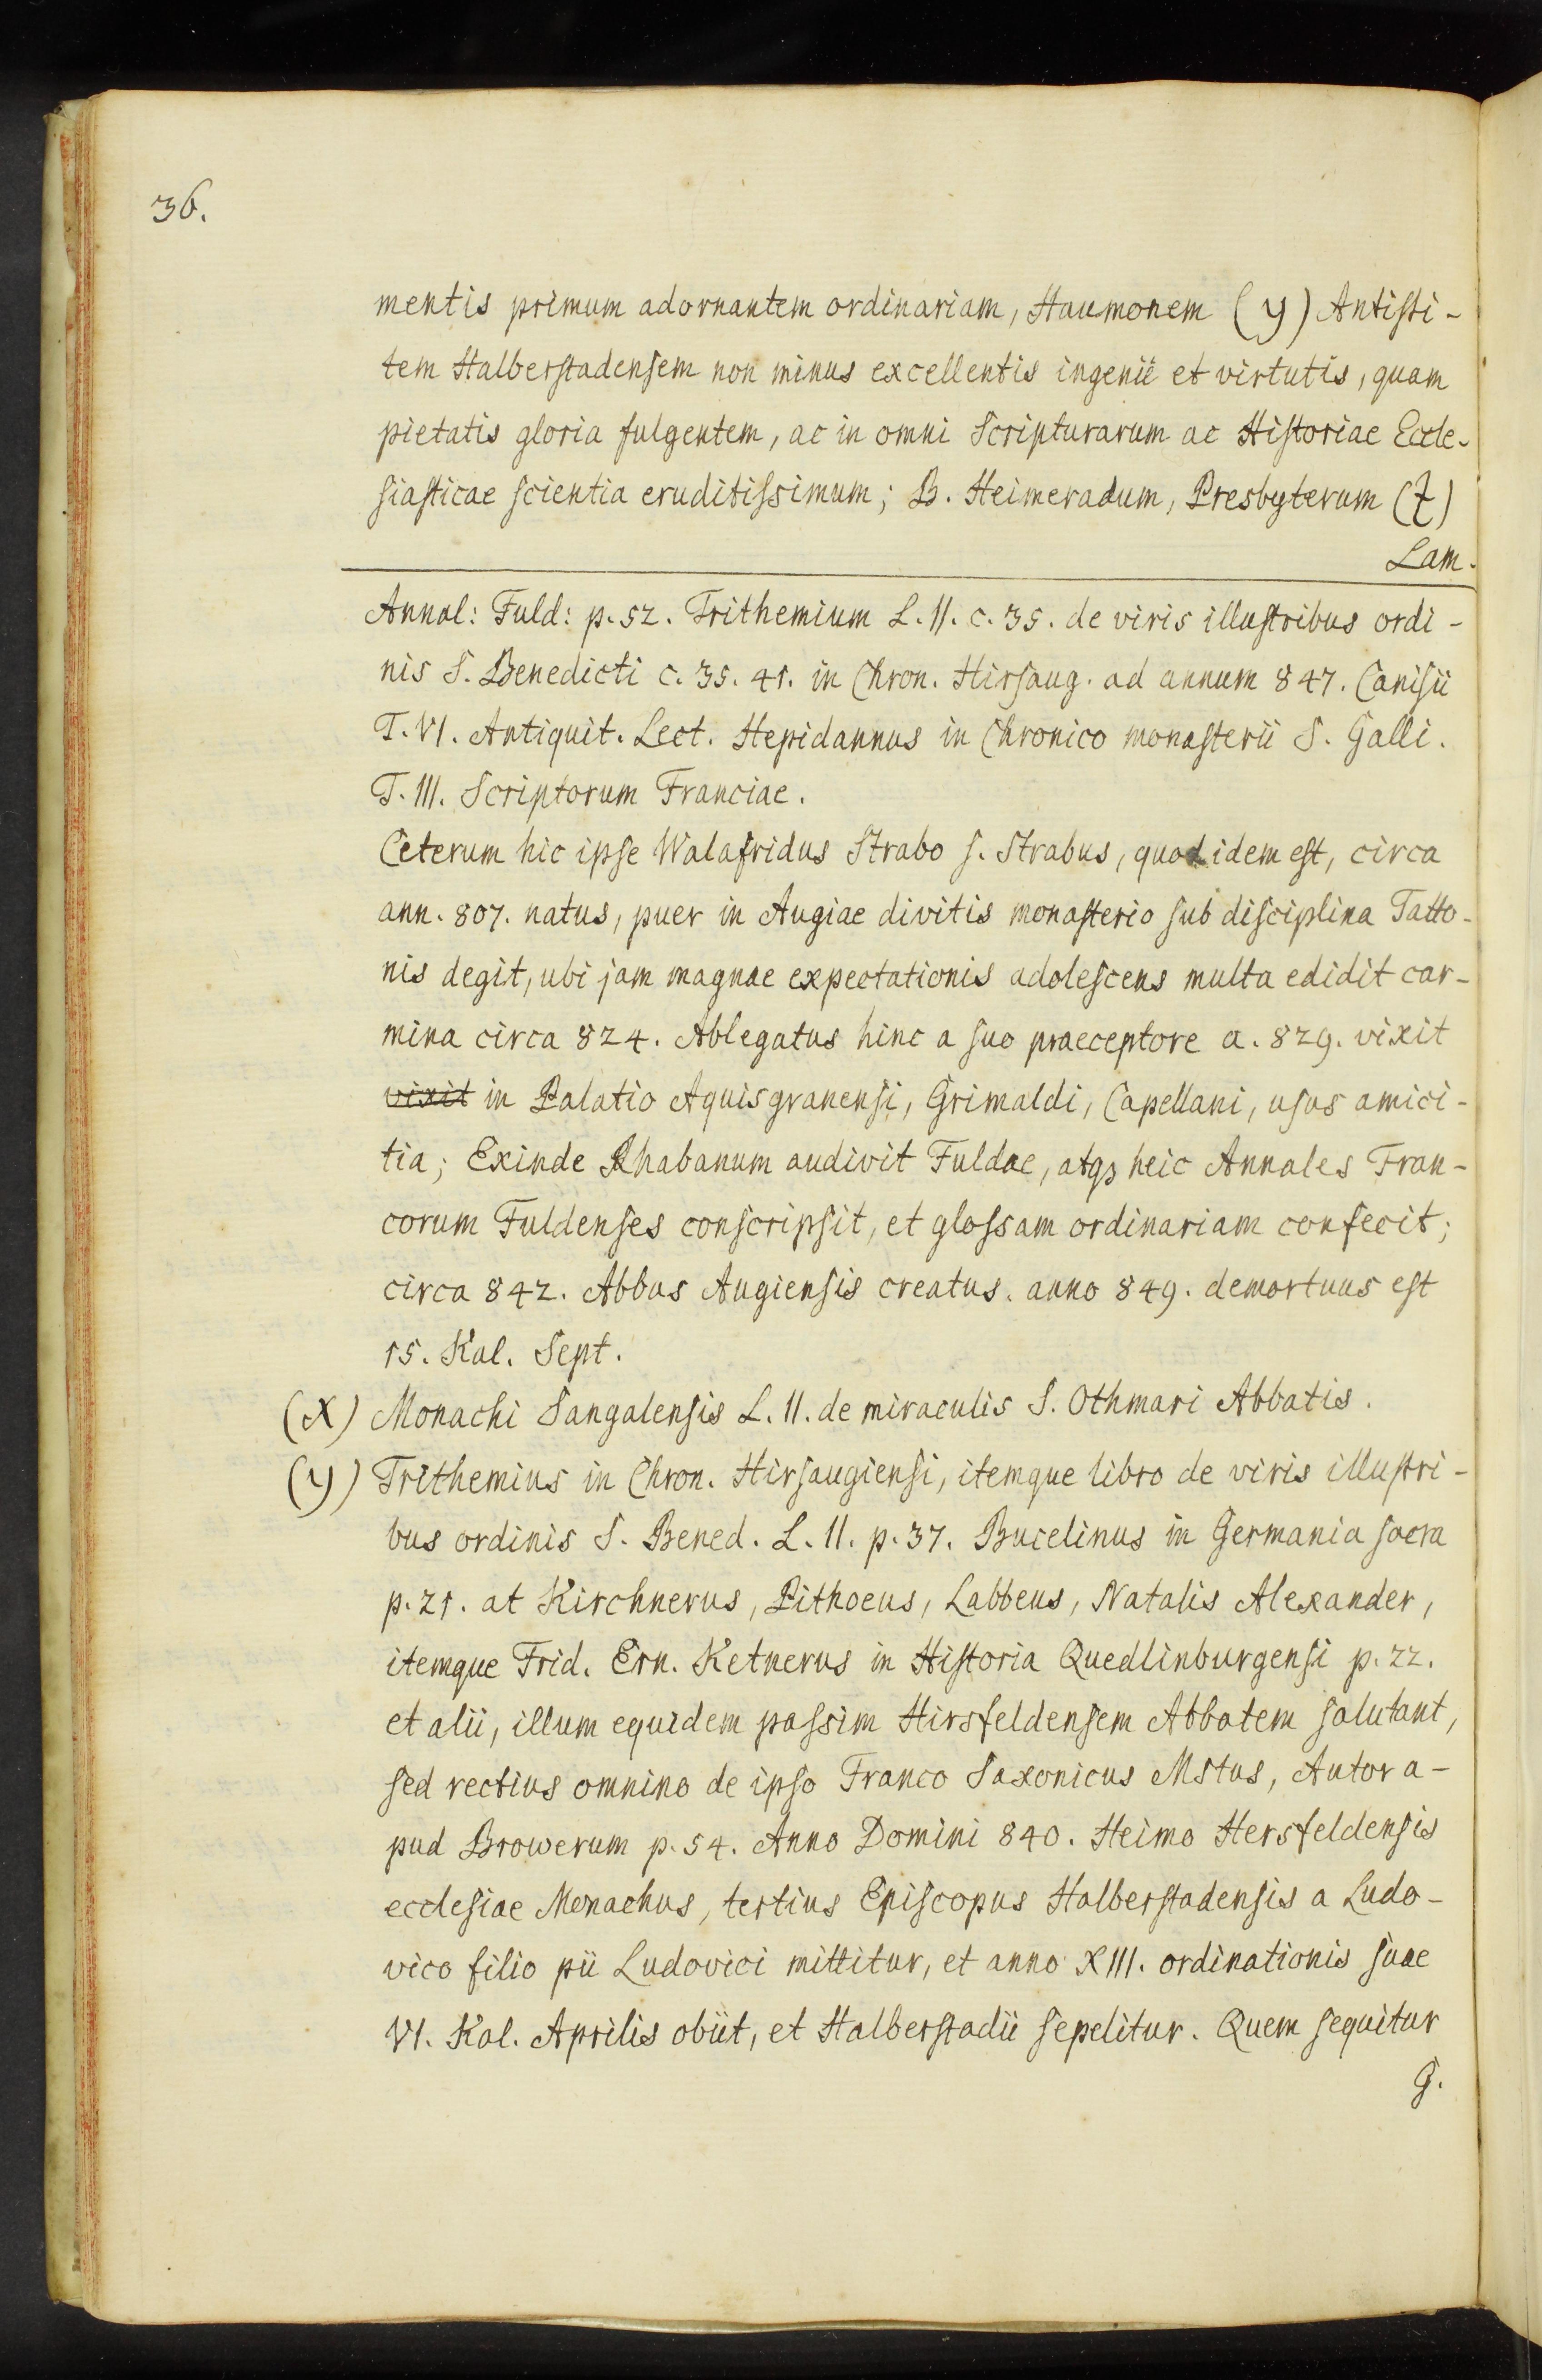 36.
mentis primum adornantem ordinariam, Haumonem (y) Antiſti-
tem Halberſtadenſem non minus excellentis ingenii et virtutis, quam
pietatis gloria fulgentem, ac in omni Scripturarum ac Hiſtoriae Eccle-
ſiaſticae ſcientia eruditiſsimum; B. Heimeradum, Presbyterum (z)
Lam.
Annal: Fuld: p. 52. Trithemium L. II. c. 35. de viris illuſtribus ordi-
nis S. Benedicti c. 35. 41. in Chron. Hirſaug. ad annum 847. Caniſii
T. VI. Antiquit. Lect. Hepidannus in Chronico monaſterii S. Galli.
T. III. Scriptorum Franciae.
Ceterum hic ipſe Walafridus Strabo ſ. Strabus, quod idem eſt, circa
ann. 807. natus, puer in Augiae divitis monaſterio ſub diſciplina Tatto-
nis degit, ubi jam magnae expectationis adoleſcens multa edidit car-
mina circa 824. Ablegatus hinc a ſuo praeceptore a. 829. vixit
vixit in Palatio Aquisgranenſi, Grimaldi, Capellani, uſus amici-
tia; Exinde Rhabanum audivit Fuldae, atqꝫ heic Annales Fran-
corum Fuldenſes conſcripſit, et gloſsam ordinariam confecit;
circa 842. Abbas Augienſis creatus. anno 849. demortuus eſt
15. Kal. Sept.
(x) Monachi Sangalenſis L. II. de miraculis S. Othmari Abbatis.
(y) Trithemius in Chron. Hirſaugienſi, itemque libro de viris illuſtri-
bus ordinis S. Bened. L. II. p. 37. Bucelinus in Germania ſacra
p. 21. at Kirchnerus, Pithoeus, Labbeus, Natalis Alexander,
itemque Frid. Ern. Ketnerus in Hiſtoria Quedlinburgenſi p. 22.
et alii, illum equidem paſsim Hirsfeldenſem Abbatem ſalutant,
ſed rectius omnino de ipſo Franco Saxonicus Mstus, Autor a-
pud Browerum p. 54. Anno Domini 840. Heimo Hersfeldenſis
eccleſiae Monachus, tertius Epiſcopus Halberſtadenſis a Ludo-
vico filio pii Ludovici mittitur, et anno XIII. ordinationis ſuae
VI. Kal. Aprilis obiit, et Halberſtadii ſepelitur. Quem ſequitur
G.